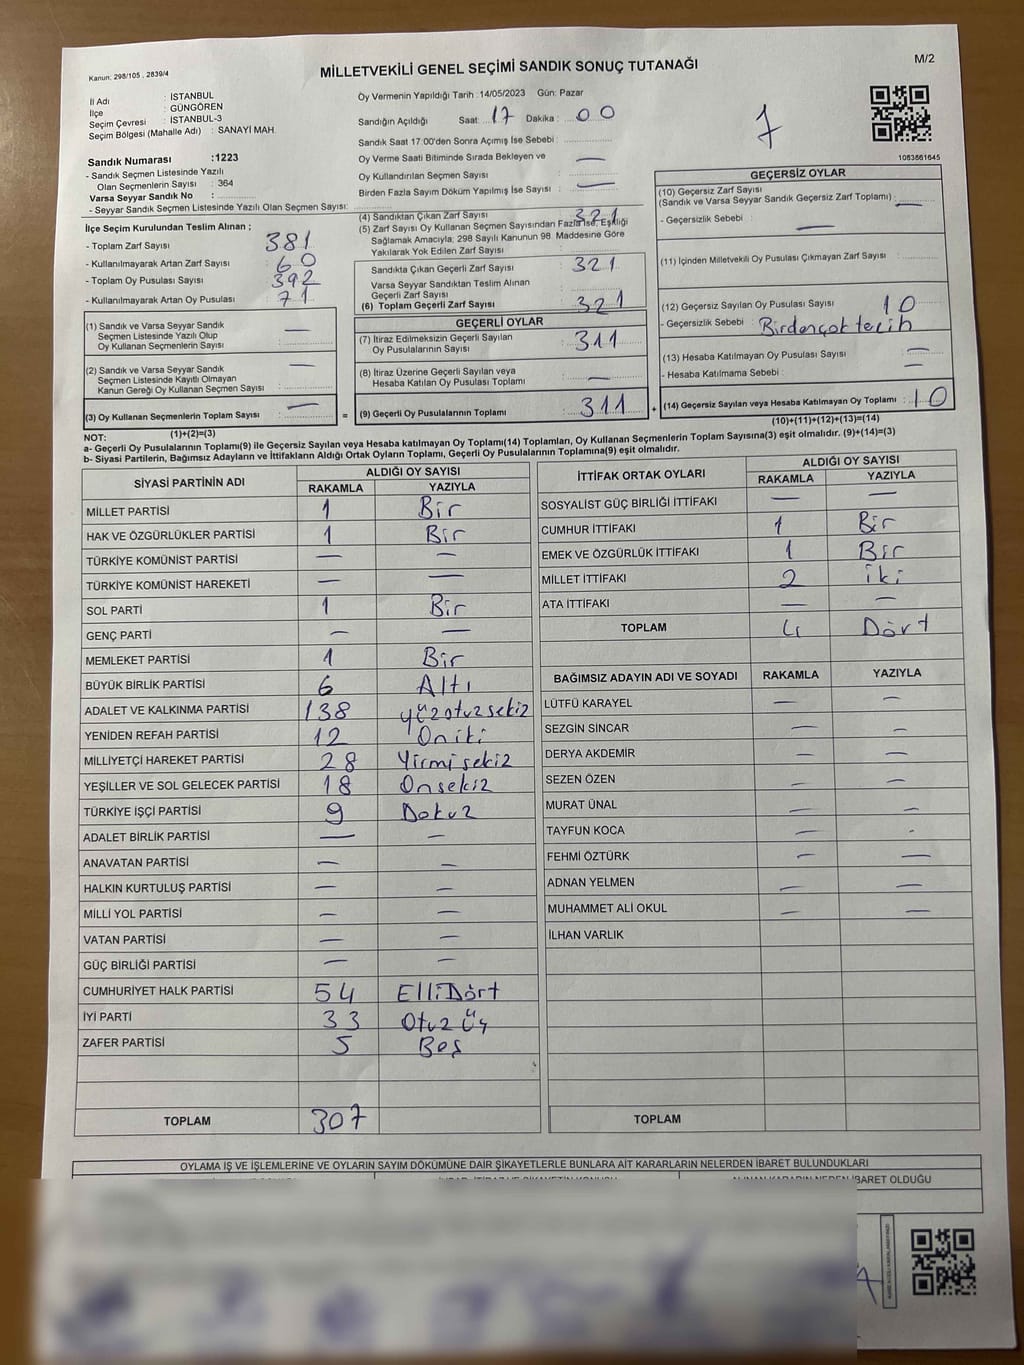 Kanun: 298/105 , 2839/4
MİLLETVEKİLİ GENEL SEÇİMİ SANDIK SONUÇ TUTANAĞI
M/2
İl Adı : İSTANBUL
İlçe : GÜNGÖREN
Seçim Çevresi : İSTANBUL-3
Seçim Bölgesi (Mahalle Adı) : SANAYİ MAH.
Sandık Numarası :1223
- Sandık Seçmen Listesinde Yazılı
Olan Seçmenlerin Sayısı : 364
Varsa Seyyar Sandık No :
- Seyyar Sandık Seçmen Listesinde Yazılı Olan Seçmen Sayısı:
Oy Vermenin Yapıldığı Tarih :14/05/2023 Gün: Pazar
Sandığın Açıldığı Saat: 17 Dakika : 00
Sandık Saat 17:00'den Sonra Açımış İse Sebebi :
Oy Verme Saati Bitiminde Sırada Bekleyen ve
Oy Kullandırılan Seçmen Sayısı : —
Birden Fazla Sayım Döküm Yapılmış İse Sayısı : —
7
1063861645
İlçe Seçim Kurulundan Teslim Alınan ;
- Toplam Zarf Sayısı : 381
- Kullanılmayarak Artan Zarf Sayısı : 60
- Toplam Oy Pusulası Sayısı : 392
- Kullanılmayarak Artan Oy Pusulası : 71
(1) Sandık ve Varsa Seyyar Sandık
Seçmen Listesinde Yazılı Olup
Oy Kullanan Seçmenlerin Sayısı : —
(2) Sandık ve Varsa Seyyar Sandık
Seçmen Listesinde Kayıtlı Olmayan
Kanun Gereği Oy Kullanan Seçmen Sayısı : —
(3) Oy Kullanan Seçmenlerin Toplam Sayısı : — =
(1)+(2)=(3)
(4) Sandıktan Çıkan Zarf Sayısı : 321
(5) Zarf Sayısı Oy Kullanan Seçmen Sayısından Fazla ise, Eşitliği
Sağlamak Amacıyla; 298 Sayılı Kanunun 98. Maddesine Göre
Yakılarak Yok Edilen Zarf Sayısı :
Sandıkta Çıkan Geçerli Zarf Sayısı : 321
Varsa Seyyar Sandıktan Teslim Alınan
Geçerli Zarf Sayısı :
(6) Toplam Geçerli Zarf Sayısı : 321
GEÇERLİ OYLAR
(7) İtiraz Edilmeksizin Geçerli Sayılan
Oy Pusulalarının Sayısı : 311
(8) İtiraz Üzerine Geçerli Sayılan veya
Hesaba Katılan Oy Pusulası Toplamı : —
(9) Geçerli Oy Pusulalarının Toplamı : 311 +
GEÇERSİZ OYLAR
(10) Geçersiz Zarf Sayısı
(Sandık ve Varsa Seyyar Sandık Geçersiz Zarf Toplamı) : —
- Geçersizlik Sebebi : —
(11) İçinden Milletvekili Oy Pusulası Çıkmayan Zarf Sayısı :
(12) Geçersiz Sayılan Oy Pusulası Sayısı : 10
- Geçersizlik Sebebi : Birdençok tecih
(13) Hesaba Katılmayan Oy Pusulası Sayısı : —
- Hesaba Katılmama Sebebi : —
(14) Geçersiz Sayılan veya Hesaba Katılmayan Oy Toplamı : 10
(10)+(11)+(12)+(13)=(14)
NOT:
a- Geçerli Oy Pusulalarının Toplamı(9) ile Geçersiz Sayılan veya Hesaba katılmayan Oy Toplamı(14) Toplamları, Oy Kullanan Seçmenlerin Toplam Sayısına(3) eşit olmalıdır. (9)+(14)=(3)
b- Siyasi Partilerin, Bağımsız Adayların ve İttifakların Aldığı Ortak Oyların Toplamı, Geçerli Oy Pusulalarının Toplamına(9) eşit olmalıdır.
SİYASİ PARTİNİN ADI ALDIĞI OY SAYISI
RAKAMLA YAZIYLA
MİLLET PARTİSİ 1 Bir
HAK VE ÖZGÜRLÜKLER PARTİSİ 1 Bir
TÜRKİYE KOMÜNİST PARTİSİ — —
TÜRKİYE KOMÜNİST HAREKETİ — —
SOL PARTİ 1 Bir
GENÇ PARTİ — —
MEMLEKET PARTİSİ 1 Bir
BÜYÜK BİRLİK PARTİSİ 6 Altı
ADALET VE KALKINMA PARTİSİ 138 yüzotuzsekiz
YENİDEN REFAH PARTİSİ 12 Oniki
MİLLİYETÇİ HAREKET PARTİSİ 28 Yirmisekiz
YEŞİLLER VE SOL GELECEK PARTİSİ 18 Onsekiz
TÜRKİYE İŞÇİ PARTİSİ 9 Dokuz
ADALET BİRLİK PARTİSİ — —
ANAVATAN PARTİSİ — —
HALKIN KURTULUŞ PARTİSİ — —
MİLLİ YOL PARTİSİ — —
VATAN PARTİSİ — —
GÜÇ BİRLİĞİ PARTİSİ — —
CUMHURİYET HALK PARTİSİ 54 ElliDört
İYİ PARTİ 33 Otuz Üç
ZAFER PARTİSİ 5 Beş
TOPLAM 307
İTTİFAK ORTAK OYLARI ALDIĞI OY SAYISI
RAKAMLA YAZIYLA
SOSYALİST GÜÇ BİRLİĞİ İTTİFAKI — —
CUMHUR İTTİFAKI 1 Bir
EMEK VE ÖZGÜRLÜK İTTİFAKI 1 Bir
MİLLET İTTİFAKI 2 iki
ATA İTTİFAKI — —
TOPLAM 4 Dört
BAĞIMSIZ ADAYIN ADI VE SOYADI RAKAMLA YAZIYLA
LÜTFÜ KARAYEL — —
SEZGİN SİNCAR — —
DERYA AKDEMİR — —
SEZEN ÖZEN — —
MURAT ÜNAL — —
TAYFUN KOCA — -
FEHMİ ÖZTÜRK — —
ADNAN YELMEN — —
MUHAMMET ALİ OKUL — —
İLHAN VARLIK
TOPLAM
OYLAMA İŞ VE İŞLEMLERİNE VE OYLARIN SAYIM DÖKÜMÜNE DAİR ŞİKAYETLERLE BUNLARA AİT KARARLARIN NELERDEN İBARET BULUNDUKLARI
ALINAN KARARIN NEDEN İBARET OLDUĞU